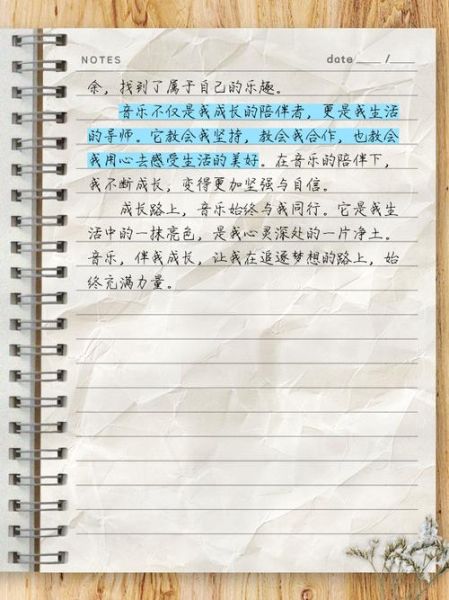 NOTES
date ____ /____
余，找到了属于自己的乐趣。
音乐不仅是我成长的陪伴者，更是我生活
的导师。它教会我坚持，教会我合作，也教会
我用心去感受生活的美好。在音乐的陪伴下，
我不断成长，变得更加坚强与自信。
成长路上，音乐始终与我同行。它是我生
活中的一抹亮色，是我心灵深处的一片净土。
音乐，伴我成长，让我在追逐梦想的路上，始
终充满力量。